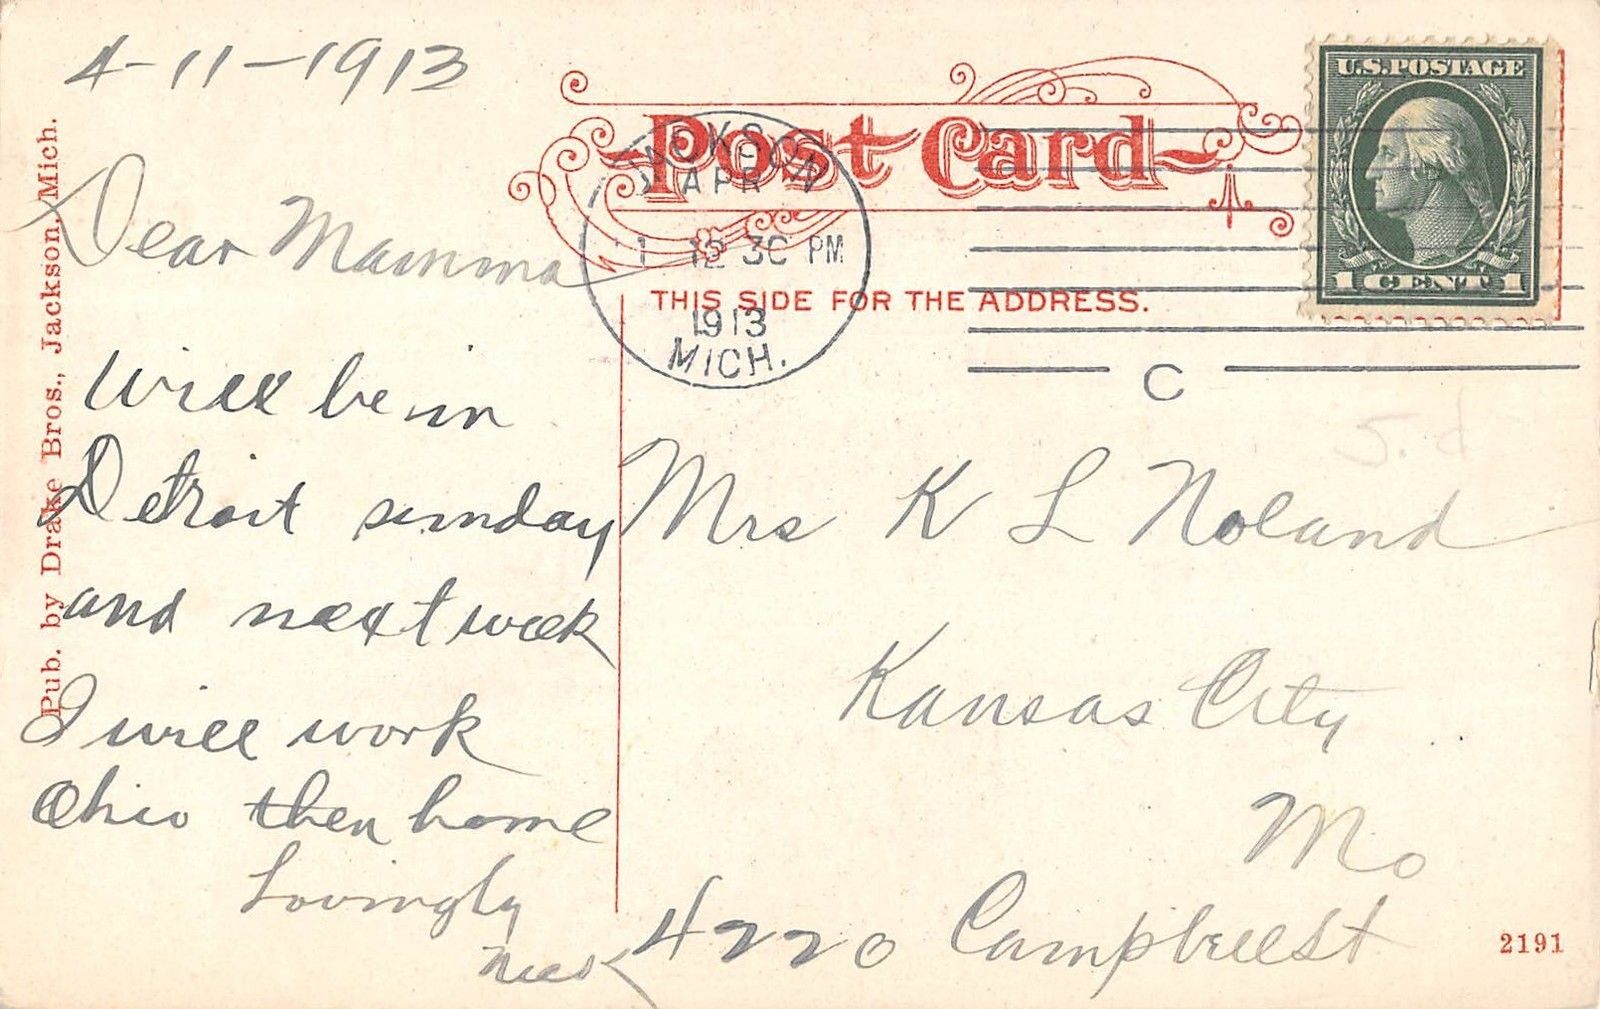 4-11-1913
Post Card
U.S. POSTAGE
1 CENT 1
JACKSON
APR
11 12 30 PM
1913
MICH.
C
THIS SIDE FOR THE ADDRESS.
Pub. by Drake Bros., Jackson, Mich.
Dear Mamma
Will be in
Detroit sunday
and next week
I will work
Ohio then home
Lovingly
Mrs K L Noland
Kansas City
Mo
4220 Campbell St
2191